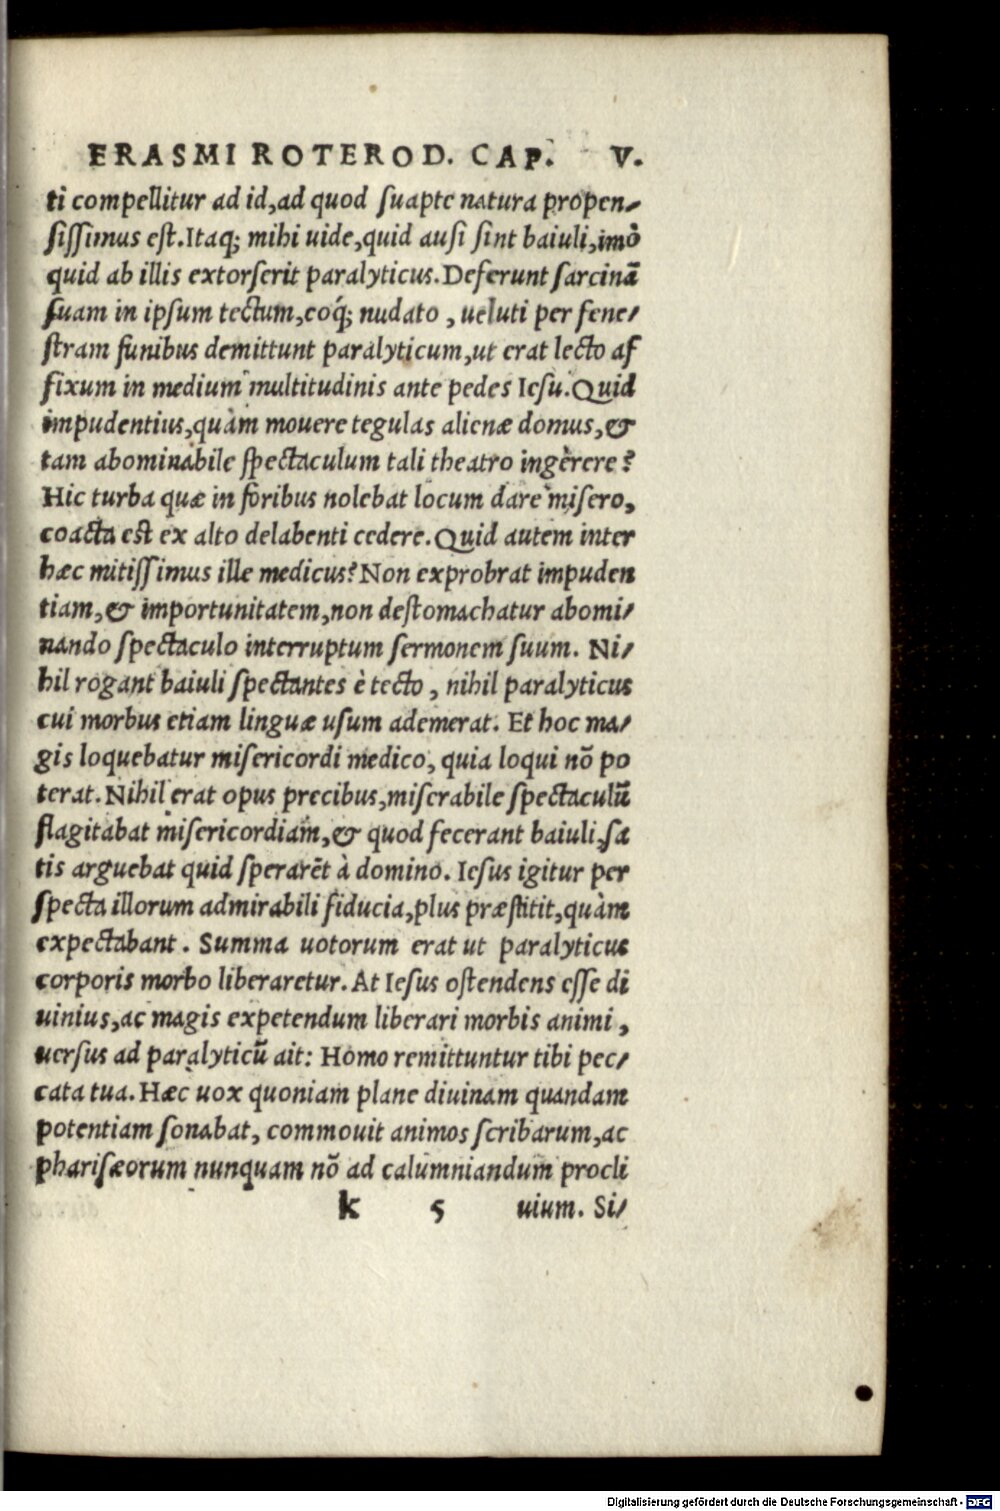 ERASMI ROTEROD. CAP. V.
ti compellitur ad id,ad quod ſuapte natura propen⸗
ſiſſimus eſt.Itaq; mihi uide,quid auſi ſint baiuli,imò
quid ab illis extorſerit paralyticus.Deferunt ſarcinā
ſuam in ipſum tectum,eóq; nudato , ueluti per fene⸗
ſtram funibus demittunt paralyticum,ut erat lecto af
fixum in medium multitudinis ante pedes Ieſu.Quid
impudentius,quàm mouere tegulas alienæ domus,&
tam abominabile ſpectaculum tali theatro ingerere?
Hic turba quæ in foribus nolebat locum dare miſero,
coacta eſt ex alto delabenti cedere.Quid autem inter
hæc mitiſſimus ille medicus?Non exprobrat impuden
tiam,& importunitatem,non deſtomachatur abomi⸗
nando ſpectaculo interruptum ſermonem ſuum. Ni⸗
hil rogant baiuli ſpectantes è tecto , nihil paralyticus
cui morbus etiam linguæ uſum ademerat. Et hoc ma⸗
gis loquebatur miſericordi medico, quia loqui nō po
terat.Nihil erat opus precibus,miſerabile ſpectaculū
flagitabat miſericordiam,& quod fecerant baiuli,ſa
tis arguebat quid ſperarēt à domino. Ieſus igitur per
ſpecta illorum admirabili fiducia,plus præſtitit,quàm
expectabant . Summa uotorum erat ut paralyticus
corporis morbo liberaretur.At Ieſus oſtendens eſſe di
uinius,ac magis expetendum liberari morbis animi ,
uerſus ad paralyticū ait: Homo remittuntur tibi pec⸗
cata tua.Hæc uox quoniam plane diuinam quandam
potentiam ſonabat, commouit animos ſcribarum,ac
phariſæorum nunquam nō ad calumniandum procli
k 5 uium. Si⸗
Digitalisierung gefördert durch die Deutsche Forschungsgemeinschaft - DFG